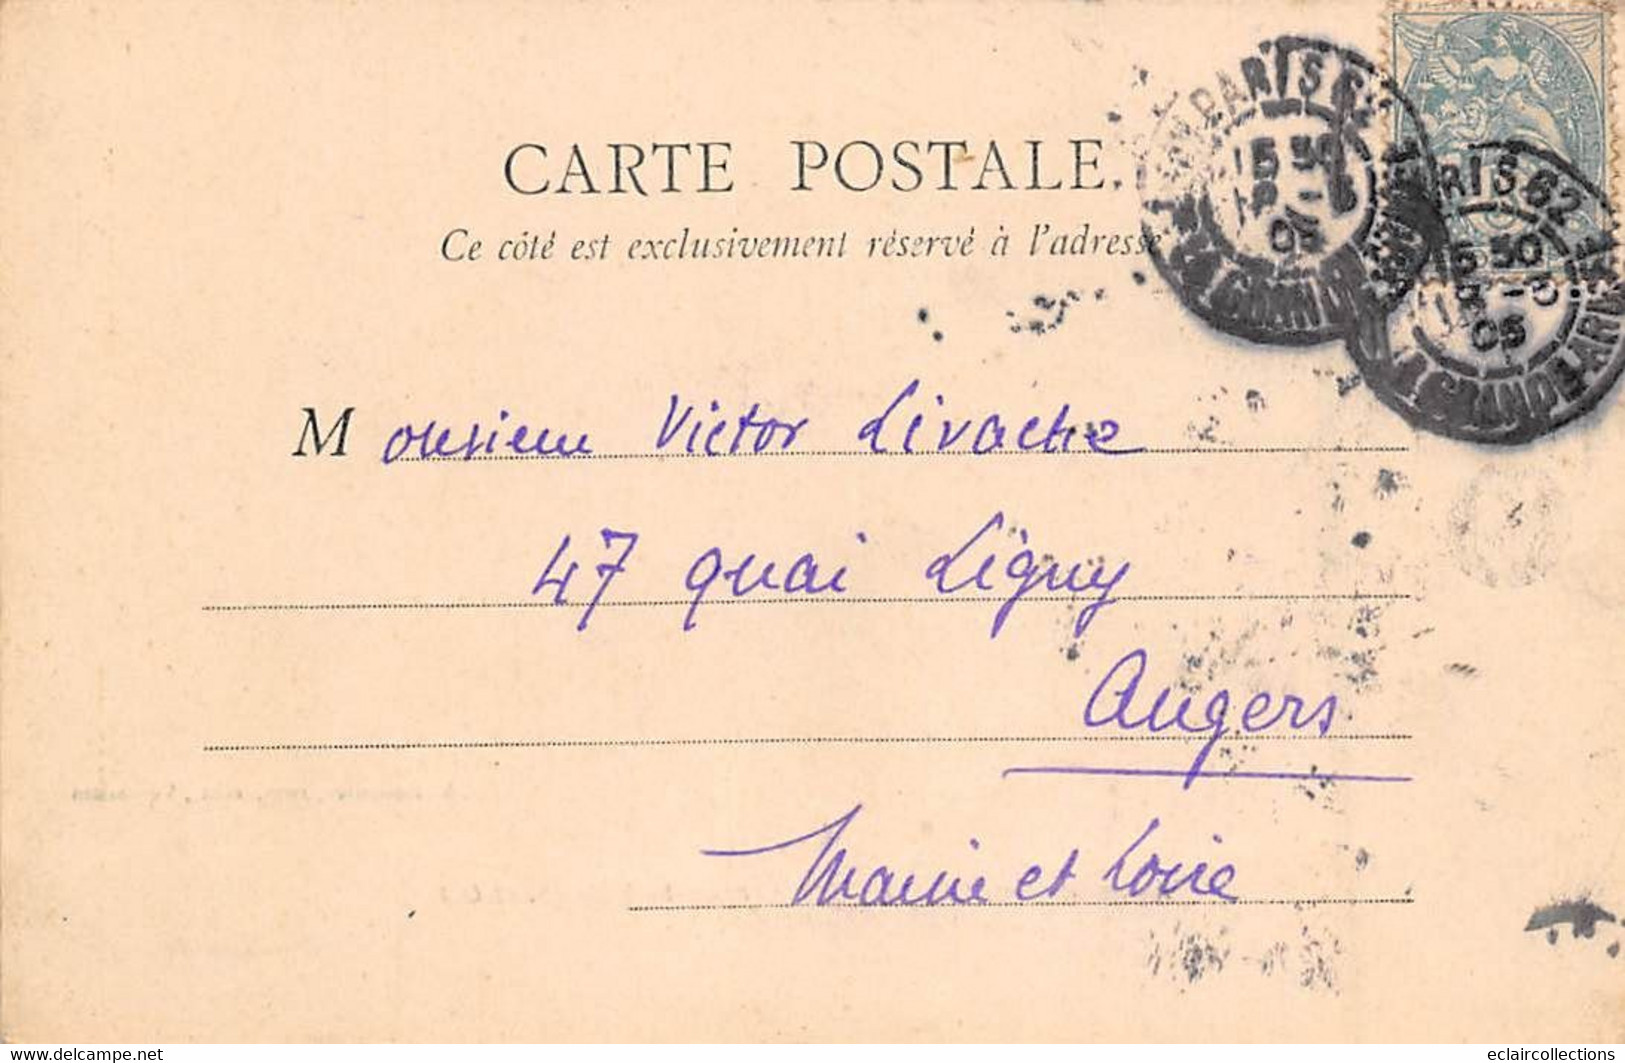 CARTE POSTALE
Ce côté est exclusivement réservé à l'adresse
PARIS 62
15 30
05
PARIS 62
5 30
05
Monsieur Victor Livache
47 quai Ligny
Angers
Maine et Loire
www.delcampe.net
eclaircollections